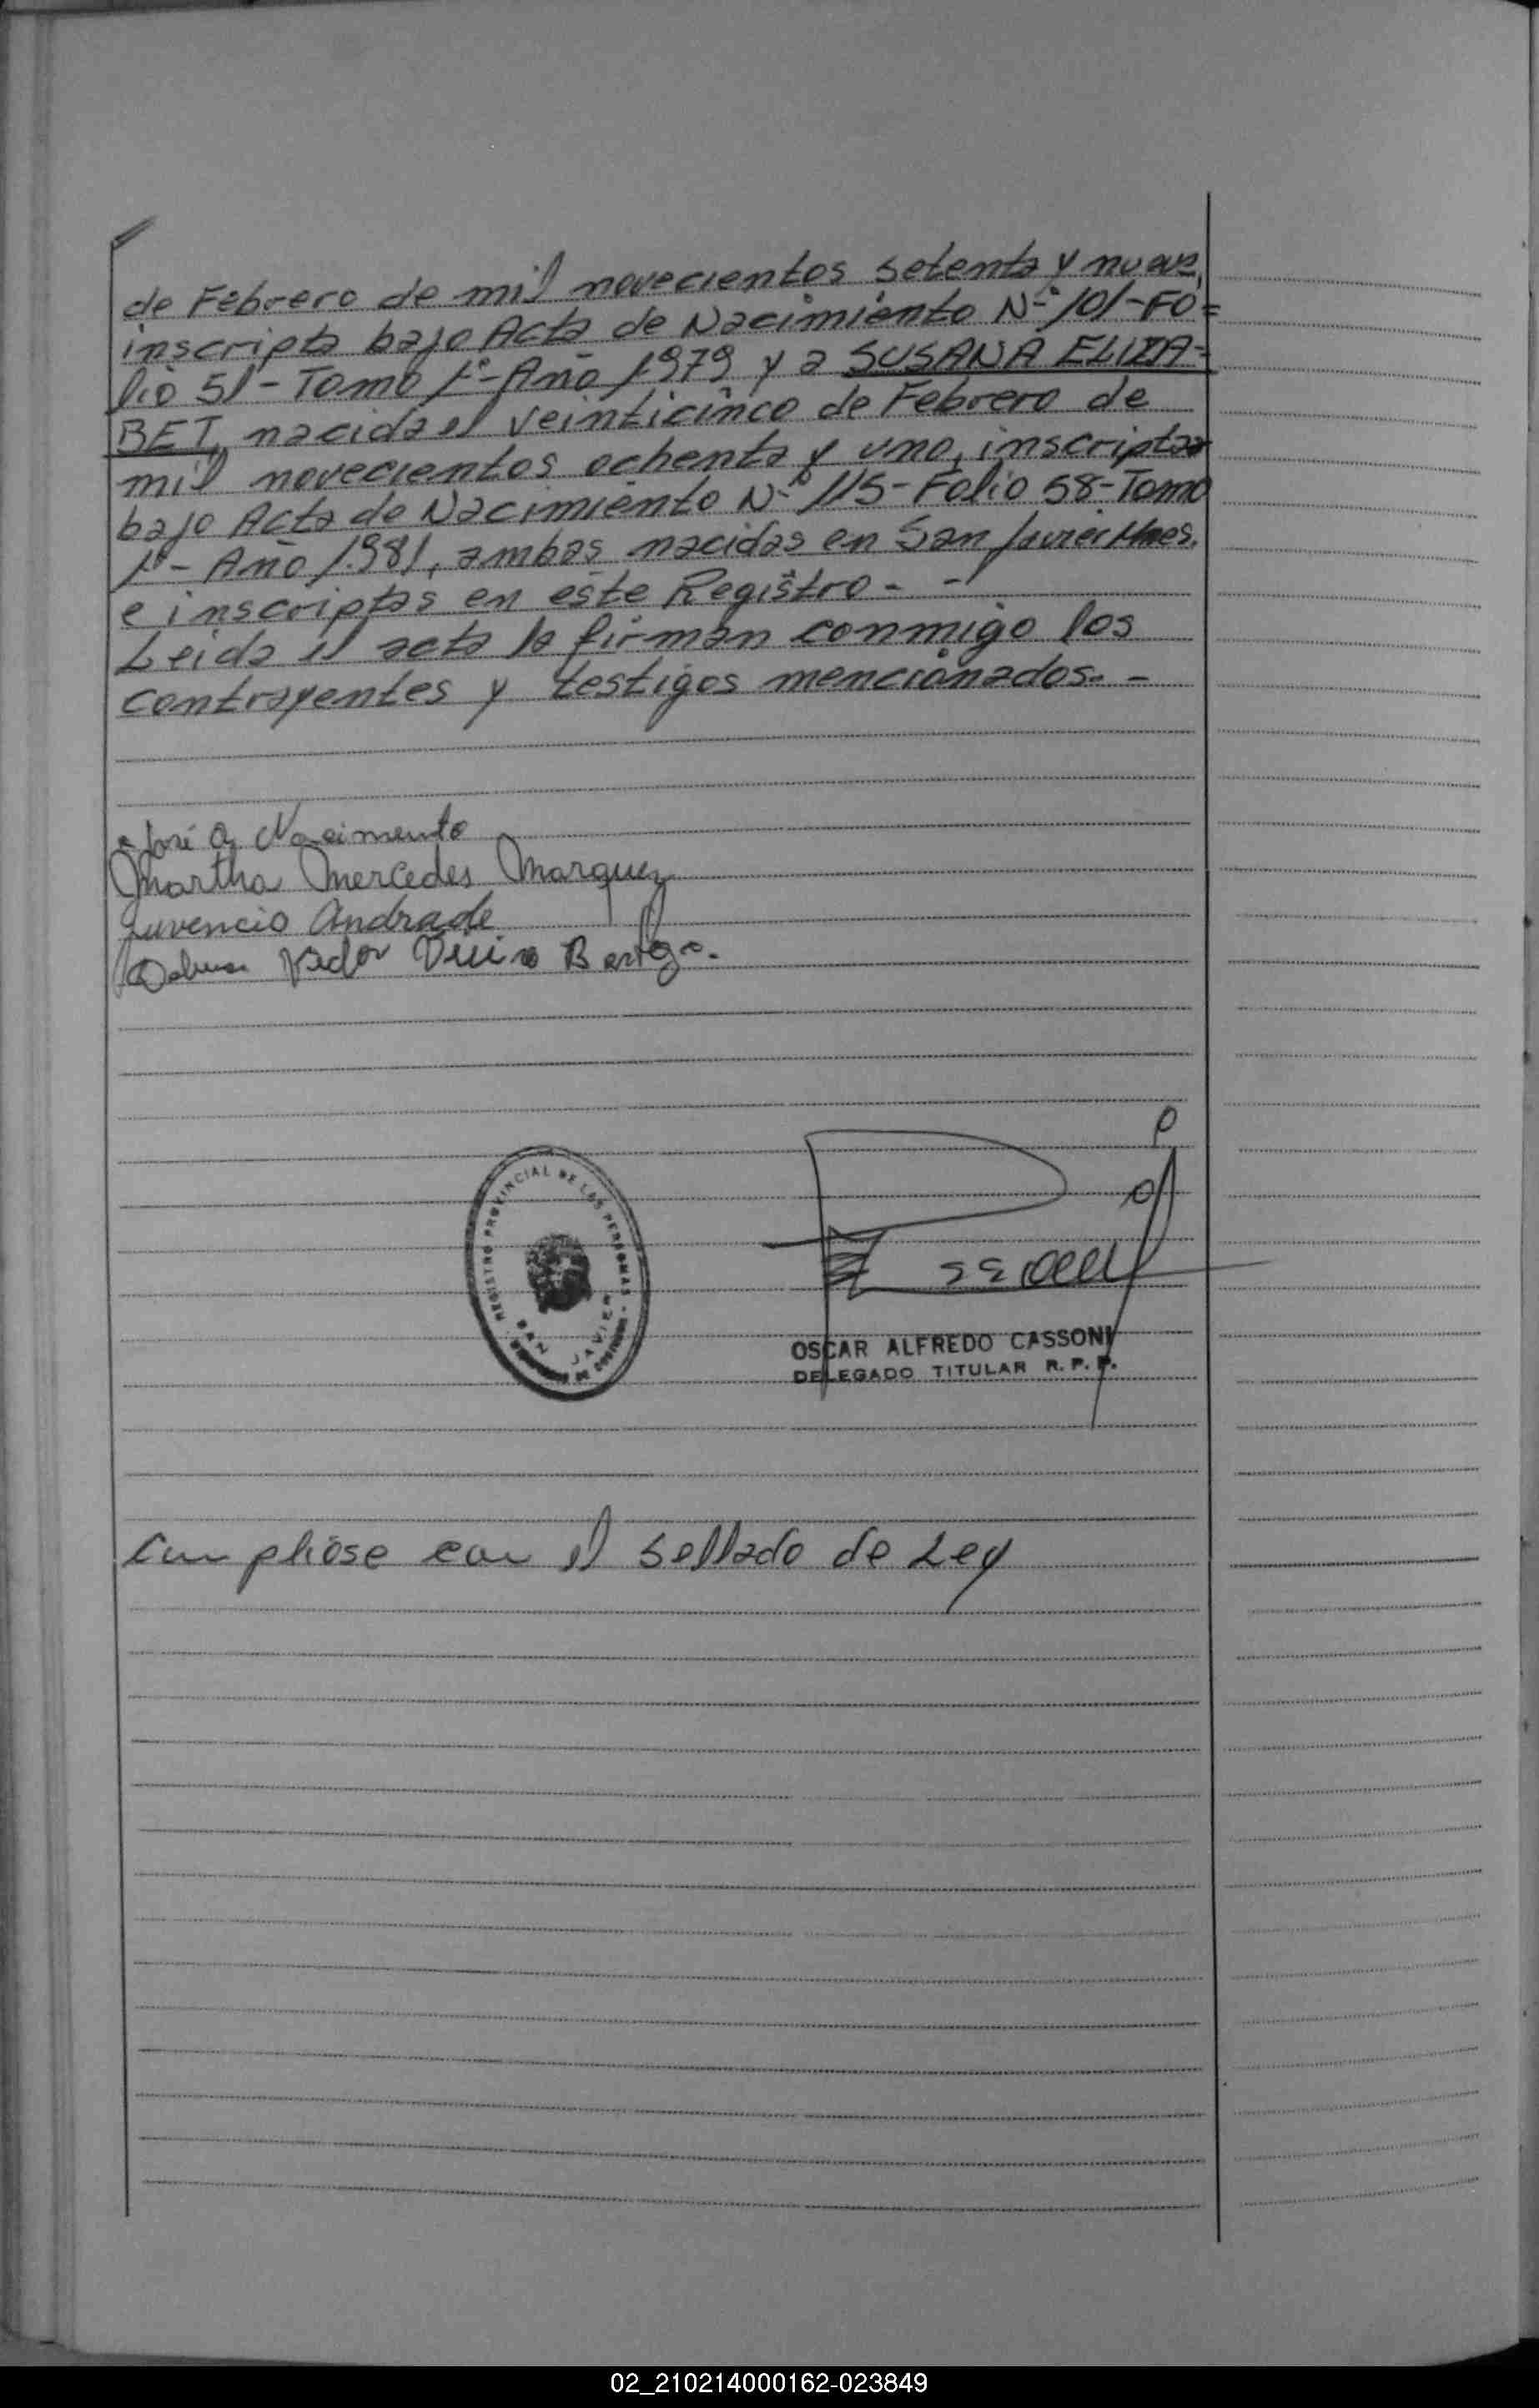 de Febrero de mil novecientos setenta y nueve,
inscripta bajo Acta de Nacimiento Nº 101-Fó=
lio 51-Tomo 1º-Año 1979 y a SUSANA ELIZA-
BET, nacida el veinticinco de Febrero de
mil novecientos ochenta y uno, inscripta
bajo Acta de Nacimiento Nº 115-Folio 58-Tomo
1º-Año 1.981, ambas nacidas en San Javier Mnes.
e inscriptas en este Registro.- -
Leida el acta la firman conmigo los
contrayentes y testigos mencionados.- -
José A. Nacimento
Martha Mercedes Marquez
Juvencio Andrade
REGISTRO PROVINCIAL DE LAS PERSONAS
SAN JAVIER
OSCAR ALFREDO CASSONI
DELEGADO TITULAR R. P. P.
Cumplióse con el sellado de Ley
02_210214000162-023849